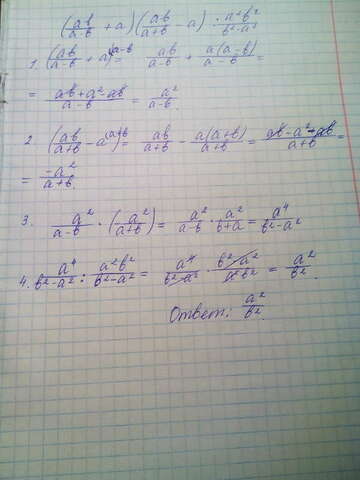 (ab/(a-b) + a)(ab/(a+b) - a) : a²b²/(b²-a²)
1. (ab/(a-b) + a^(a-b)) = ab/(a-b) + a(a-b)/(a-b) =
= (ab+a²-ab)/(a-b) = a²/(a-b).
2. (ab/(a+b) - a^(a+b)) = ab/(a+b) - a(a+b)/(a+b) = (ab-a²-ab)/(a+b) =
= -a²/(a+b).
3. a²/(a-b) · (a²/(a+b)) = a²/(a-b) · a²/(b+a) = a⁴/(b²-a²)
4. a⁴/(b²-a²) : a²b²/(b²-a²) = a⁴/(b²-a²) · (b²-a²)/(a²b²) = a²/b².
Ответ: a²/b².